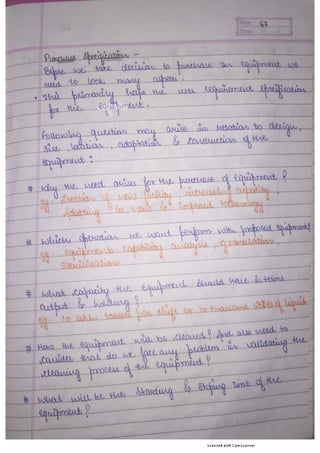 Page: 67
Date:
Purchase Specification -
Before we take decision to purchase an equipment we
need to look many aspects.
• This primarily helps the user requirement specification
for the equipment.
Following question may arise in relation to design,
size, location, adaptation & construction of the
equipment :
# Why the need arises for the purchase of equipment ?
eg: Creation of new facility, increasing capacity
Adapting to new & improved technology
# Which operation we want perform with proposed equipment?
eg: equipment capability analysis, granulation
sterilization
# What capacity the equipment should have interms
output & holding ?
eg- 10 lakh tablets per shift or 10 thousand litres of liquids.
# How the equipment will be cleaned? And also need to
consider that do we face any problem in validating the
cleaning process of the equipment ?
# What will be the Starting & Stoping time of the
equipment ?
Scanned with CamScanner